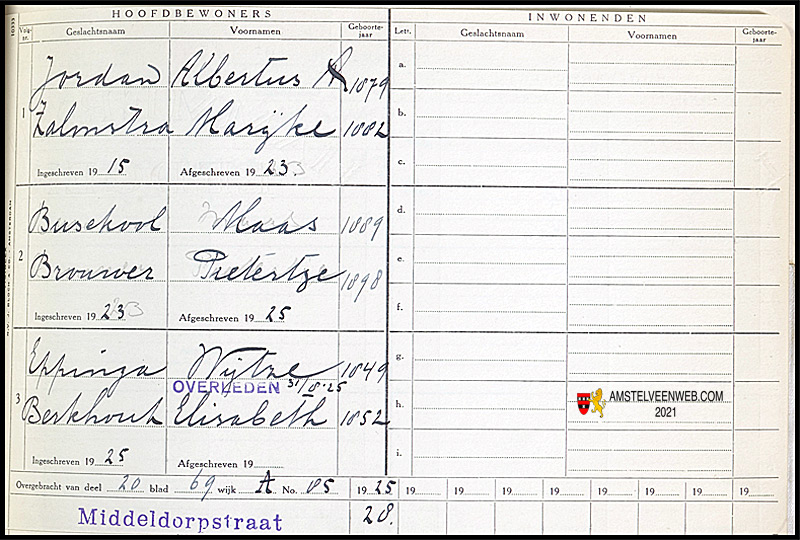 HOOFDBEWONERS INWONENDEN
Volg- nr. Geslachtsnaam Voornamen Geboorte- jaar Lett. Geslachtsnaam Voornamen Geboorte- jaar
1
Jordan Albertus 1879 a.
Zalmstra Marijke 1882 b.
Ingeschreven 19 15 Afgeschreven 19 23. c.
2
Busekool Maas 1889 d.
Brouwer Pietertze 1898 e.
Ingeschreven 19 23 Afgeschreven 19 25 f.
3
Eppinga Wijtze 1849 g.
OVERLEDEN 31/8-25
Berkhout Elisabeth 1852 h.
Ingeschreven 19 25 Afgeschreven 19 i.
AMSTELVEENWEB.COM
2021
Overgebracht van deel 20 blad 69 wijk A No. 85 19 25 19 19 19 19 19 19 19 19
Middeldorpstraat 28.